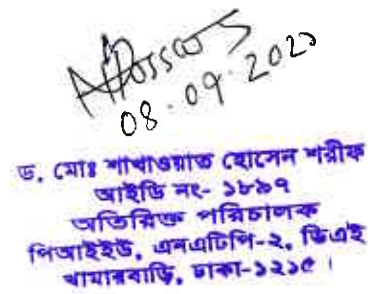 08.09.202
ড. মোঃ শাখাওয়াত হোসেন শরীফ
আইডি নং- ১৮৯৭
অতিরিক্ত পরিচালক
পিআইইউ, এনএটিপি-২, ডিএই
খামারবাড়ি, ঢাকা-১২১৫ ।